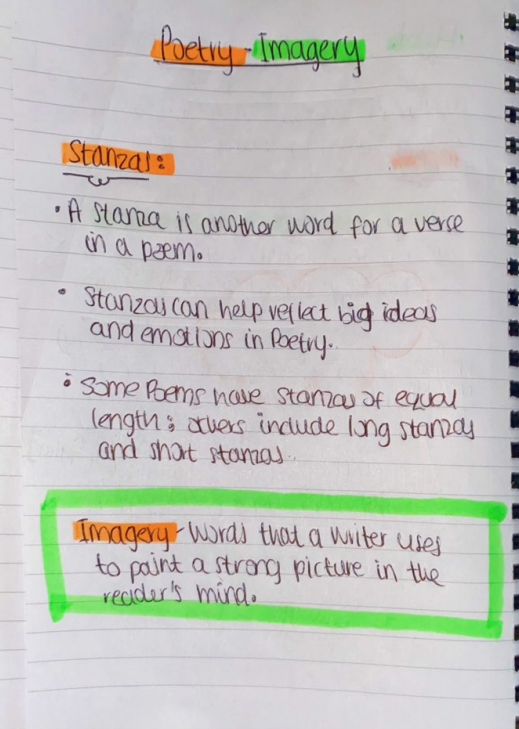 Poetry - Imagery
Stanzas:
• A stanza is another word for a verse
in a poem.
• Stanzas can help reflect big ideas
and emotions in Poetry.
• Some Poems have stanzas of equal
length; others include long stanzas
and short stanzas.
Imagery - Words that a writer uses
to paint a strong picture in the
reader's mind.